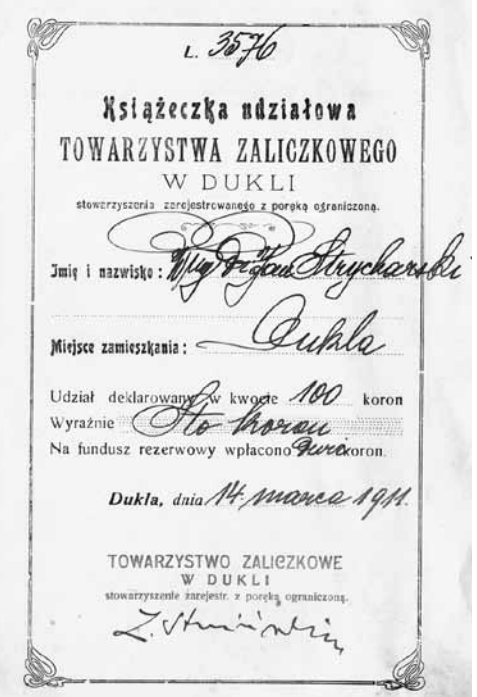 L. 3576
Książeczka udziałowa
TOWARZYSTWA ZALICZKOWEGO
W DUKLI
stowarzyszenia zarejestrowanego z poręką ograniczoną.
Imię i nazwisko : Wny Dr Jan Strycharski
Miejsce zamieszkania : Dukla
Udział deklarowany w kwocie 100 koron
Wyraźnie Sto koron
Na fundusz rezerwowy wpłacono dwie koron.
Dukla, dnia 14. marca 1911.
TOWARZYSTWO ZALICZKOWE
W DUKLI
stowarzyszenie zarejestr. z poręką ograniczoną.